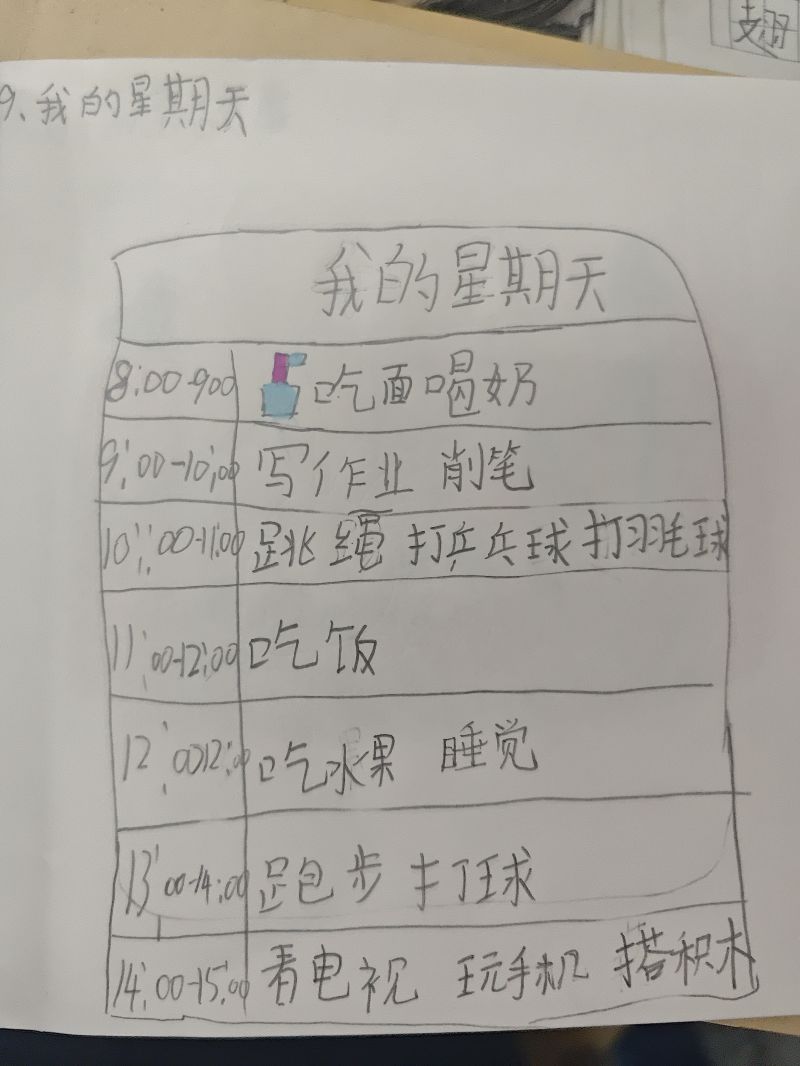 翅
9、我的星期天
我的星期天
8:00-900 吃面喝奶
9:00-10:00 写作业 削笔
10:00-11:00 跳绳 打乒乓球 打羽毛球
11:00-12:00 吃饭
12:0012:00 吃水果 睡觉
13:00-14:00 跑步 打球
14:00-15:00 看电视 玩手机 搭积木